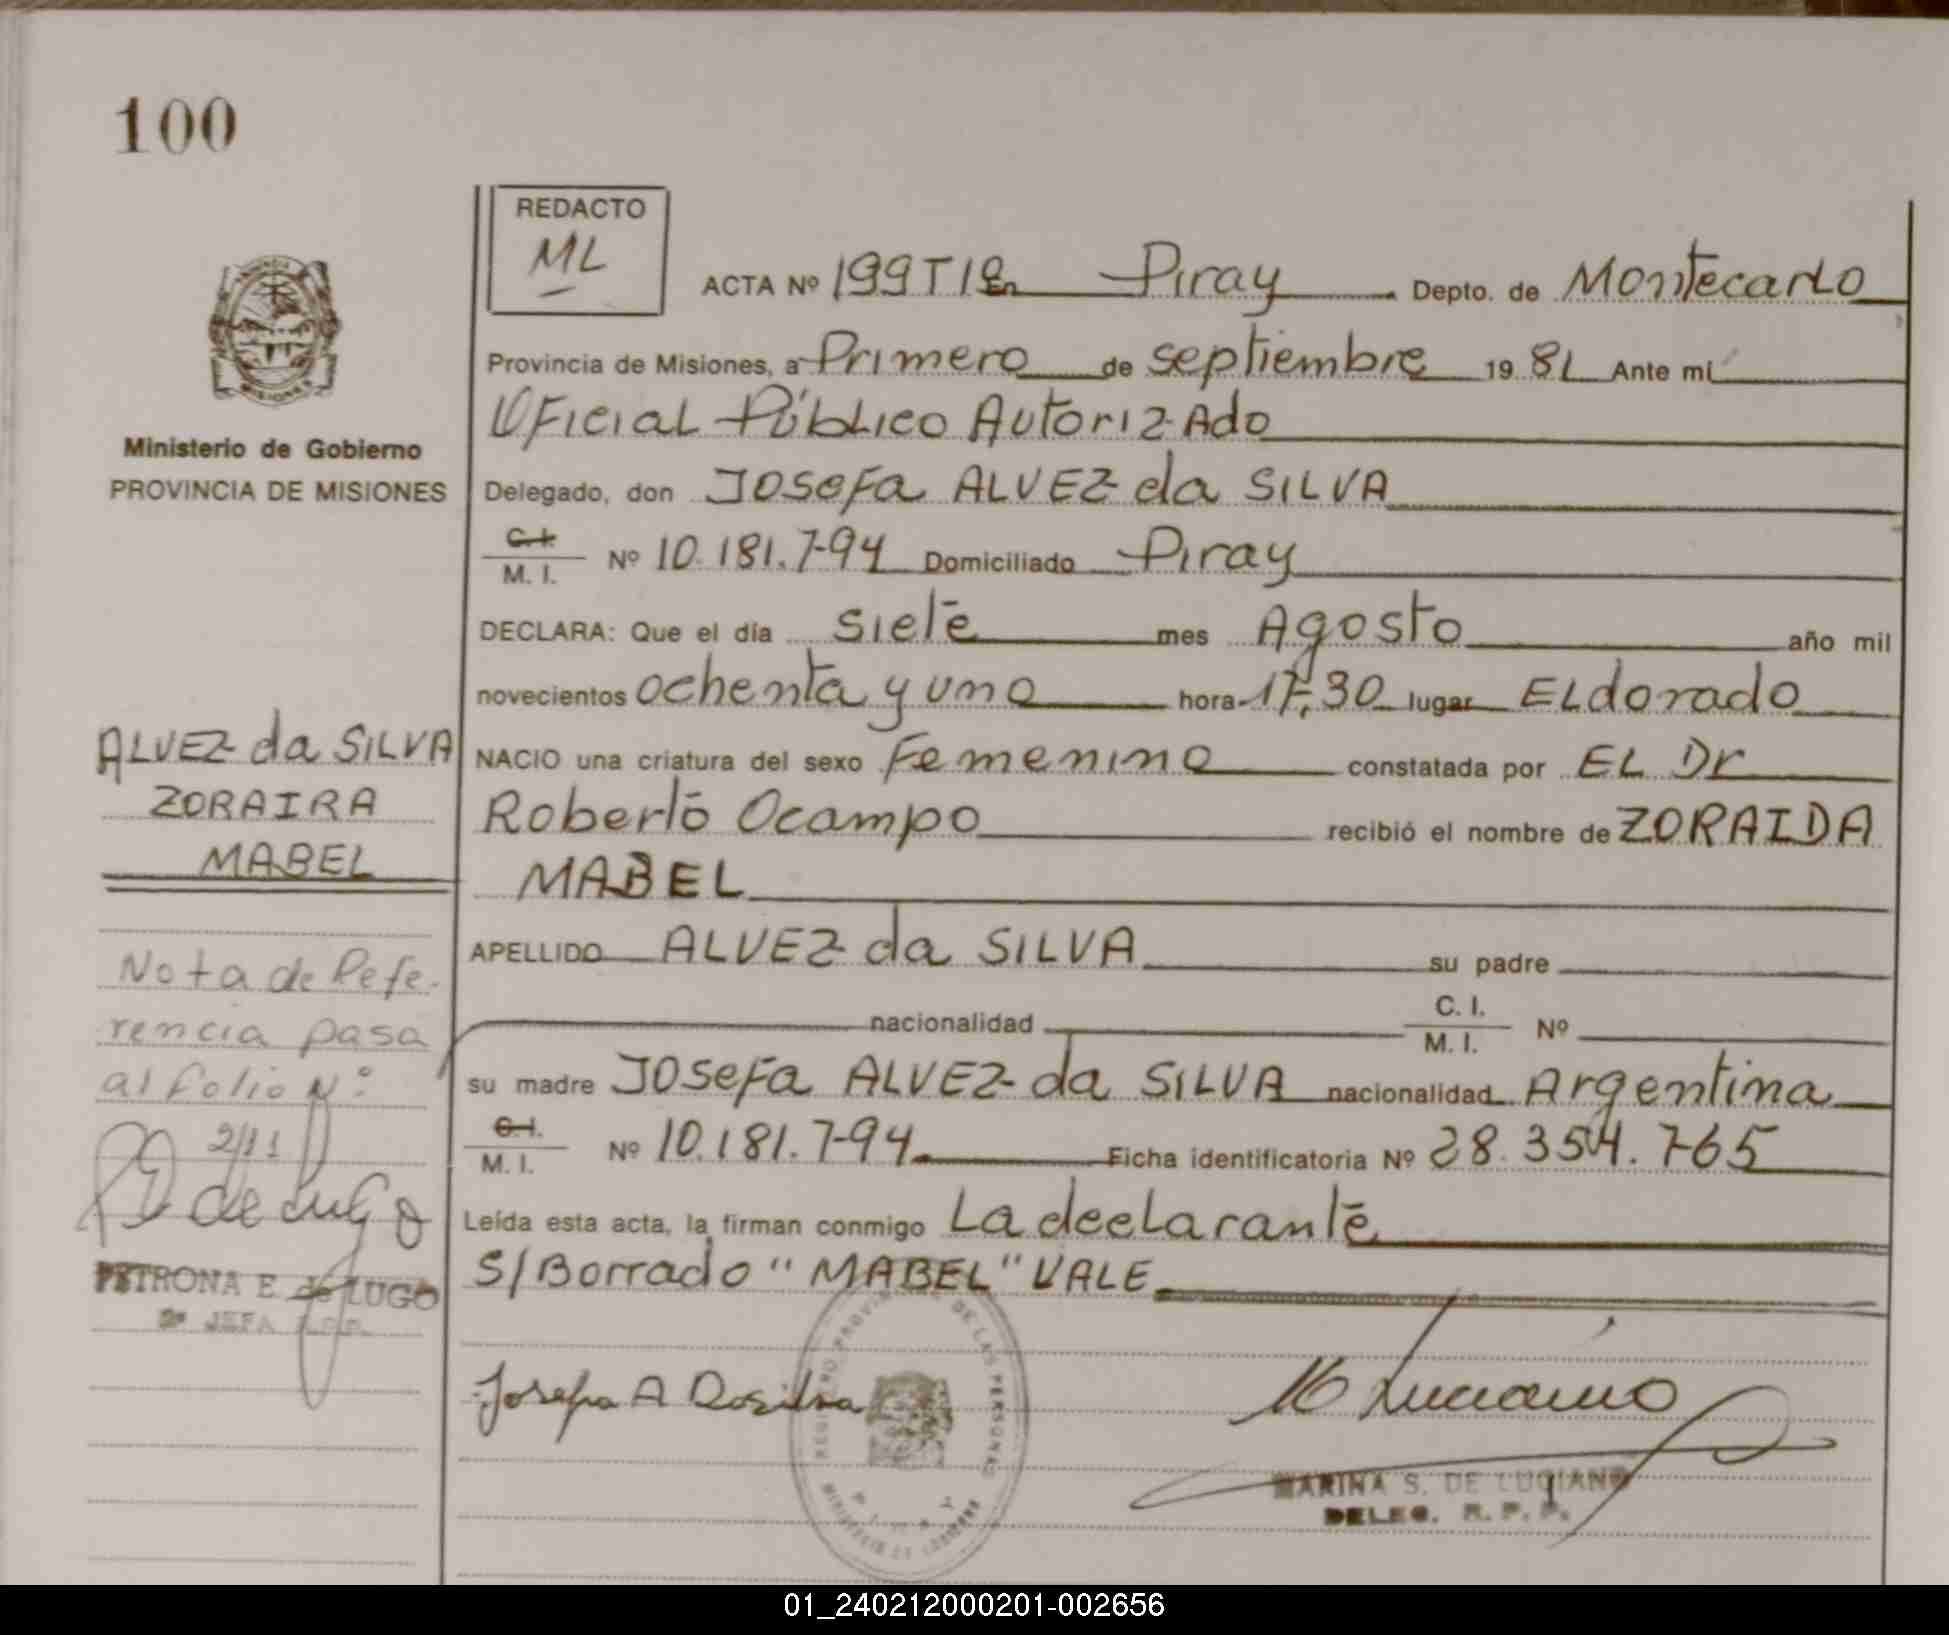 100
REDACTO
ML
ACTA Nº 199 T I En Piray Depto. de Montecarlo
Provincia de Misiones, a Primero de septiembre 1981 Ante mí
Oficial Público Autorizado
Ministerio de Gobierno
PROVINCIA DE MISIONES
Delegado, don Josefa ALVEZ da SILVA
C. I.
M. I. Nº 10.181.794 Domiciliado Piray
DECLARA: Que el día siete mes Agosto año mil
novecientos ochenta y uno hora 17,30 lugar ELdorado
ALVEZ da SILVA
ZORAIRA
MABEL
NACIO una criatura del sexo Femenino constatada por EL Dr
Roberto Ocampo recibió el nombre de ZORAIDA
MABEL
APELLIDO ALVEZ da SILVA su padre
nacionalidad C. I.
M. I. Nº
su madre Josefa ALVEZ da SILVA nacionalidad Argentina
C. I.
M. I. Nº 10.181.794 Ficha identificatoria Nº 28.354.765
Leída esta acta, la firman conmigo La declarante
S/Borrado "MABEL" VALE
Nota de Refe-
rencia pasa
al folio Nº
2/11
de Lugo
PETRONA E. de LUGO
2ª JEFA R.P.P.
Josefa A Dasilva
REGISTRO PROVINCIAL DE LAS PERSONAS
PIRAY
MINISTERIO DE GOBIERNO
M Luciano
MARINA S. DE LUCIANO
DELEG. R. P. P.
01_240212000201-002656